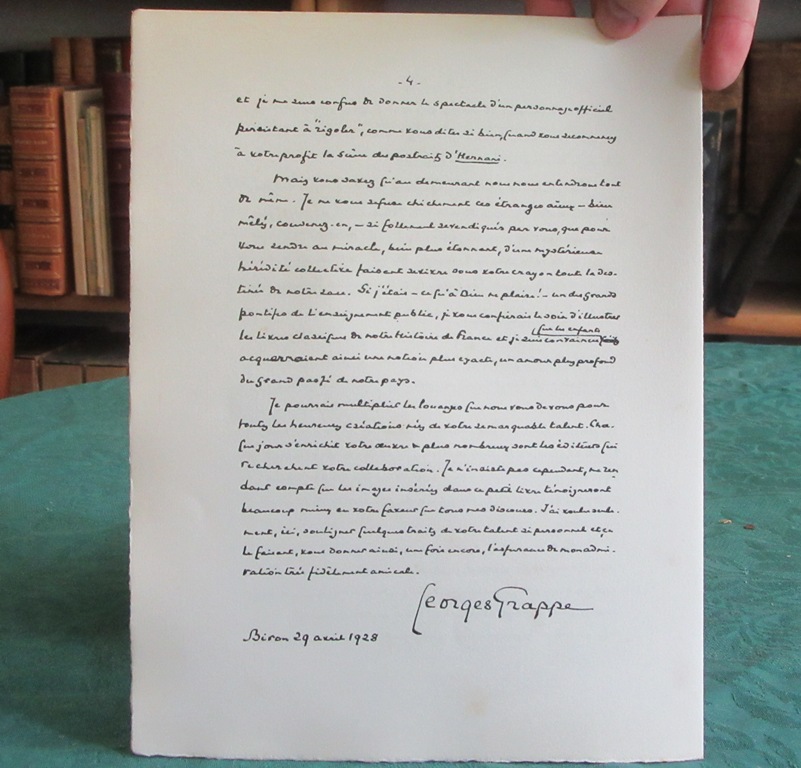 -4-
et je me sens confus de donner le spectacle d'un personnage officiel
persistant à "rigoler", comme vous dites si bien, quand vous recommencez
à votre profit la scène des portraits d'Hernani.
Mais vous savez qu'au demeurant nous nous entendrons tout
de même. Je ne vous refuse chichement ces étranges aïeux – bien
mêlés, convenez-en, – si follement revendiqués par vous, que pour
vous rendre au miracle, bien plus étonnant, d'une mystérieuse
hérédité collective faisant revivre sous votre crayon tout la des-
tinée de notre race. Si j'étais – ce qu'à Dieu ne plaise! – un des grands
pontifes de l'enseignement public, je vous confierais le soin d'illustrer
les livres classiques de notre histoire de France et je suis convaincu
que les enfants
acquerraient ainsi une notion plus exacte, un amour plus profond
du grand passé de notre pays.
Je pourrais multiplier les louanges que nous vous devons pour
toutes les heureuses créations nées de votre remarquable talent. Cha-
que jour s'enrichit votre œuvre & plus nombreux sont les éditeurs qui
recherchent votre collaboration. Je n'insiste pas cependant, me ren
dant compte que les images insérées dans ce petit livre témoigneront
beaucoup mieux en votre faveur que tous mes discours. J'ai voulu seule-
ment, ici, souligner quelques traits de votre talent si personnel et, en
le faisant, vous donner ainsi, une fois encore, l'assurance de mon admi-
ration très fidèlement amicale.
Georges Grappe
Biron 29 avril 1928